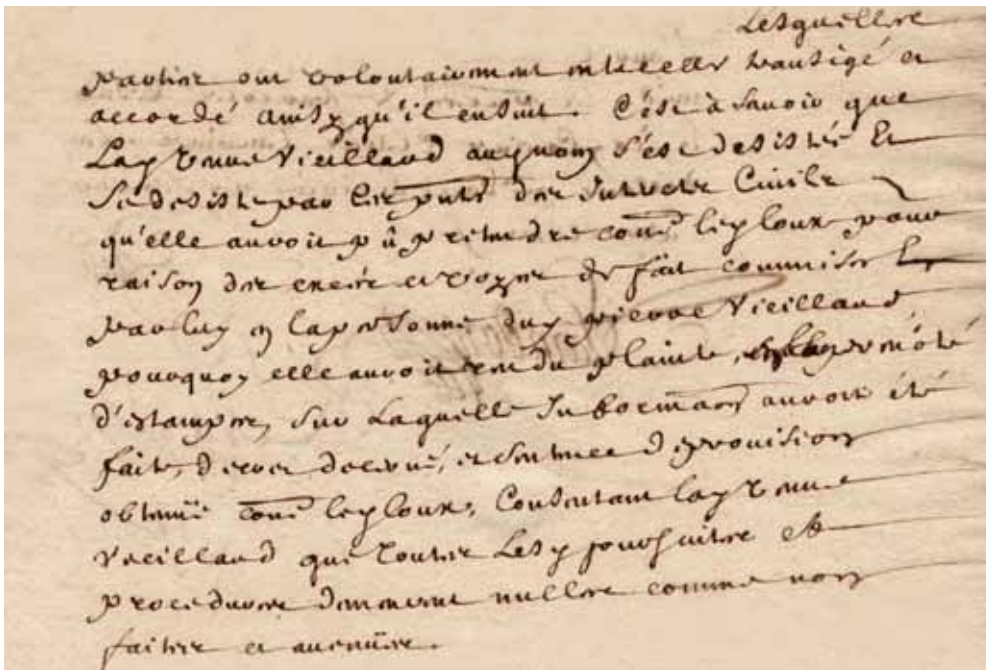 Lesquelles
parties ont volontairement entre elles transigé et
accordé ainsy qu'il ensuit. C'est à savoir que
Lad veuve Vieillard aud nom s'est desistée Et
se desiste par Ces pntes des Interets Civils
qu'elle auroit pû pretendre contre led loux pour
raison des excès et voyes de fait commises
par luy en la personne dud pierre Vieillard,
pourquoy elle auroit rendu plainte, prevôté
d'estampes, sur Laquelle Information auroit été
faite, decret decerné, et sentence de provision
obtenuë contre led loux, Consentant lad veuve
Vieillard que toutes Lesd poursuittes et
procedures demeurent nulles comme non
faites et avenües.